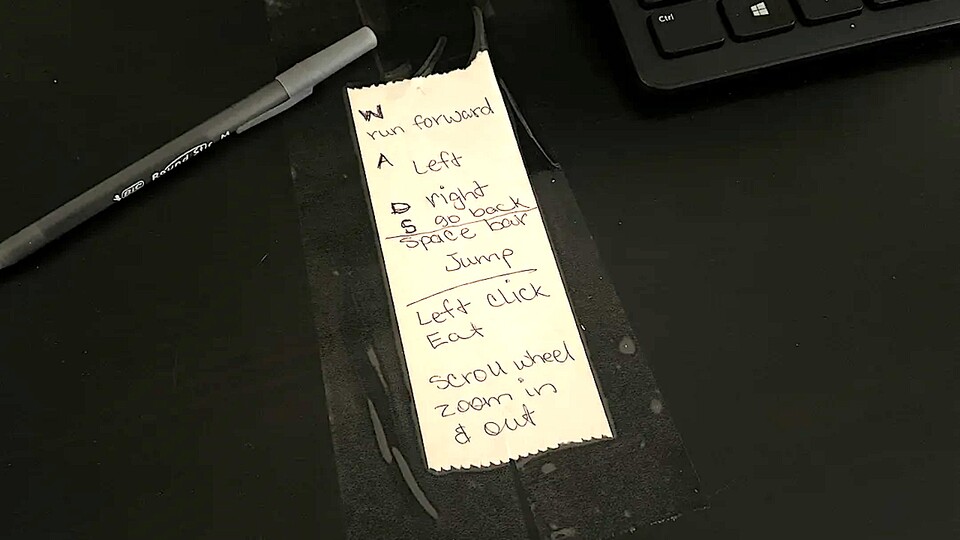 Ctrl
BIC Round Stic M
W
run forward
A Left
D right
S go back
Space bar
Jump
Left click
Eat
Scroll wheel
zoom in
& out